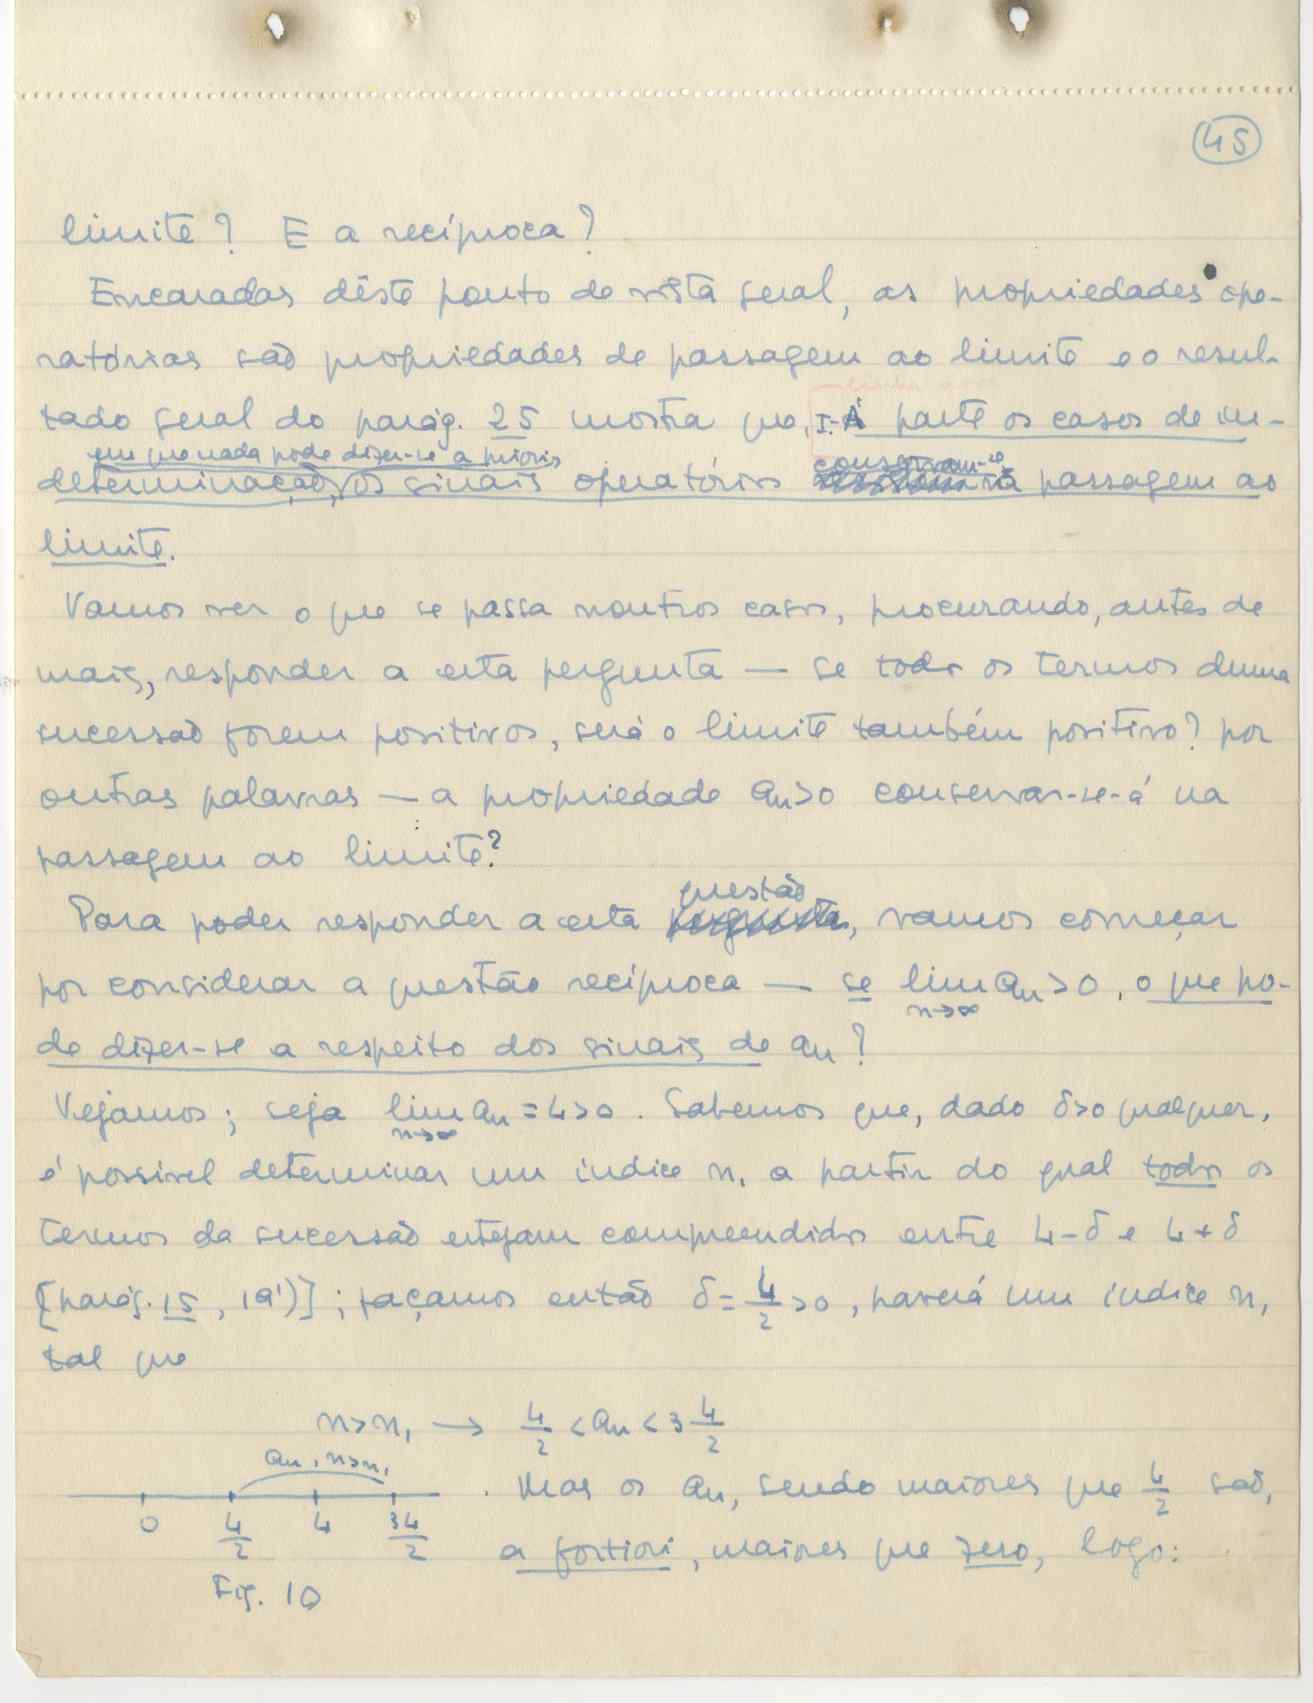 45
limite? E a recíproca?
Encaradas dêste ponto de vista geral, as propriedades ope-
ratórias são propriedades de passagem ao limite e o resul-
tado geral do parág. 25 mostra que, I-À parte os casos de in-
em que nada pode dizer-se a priori,
determinação, os sinais operatórios conservam-se na passagem ao
limite.
Vamos ver o que se passa noutros casos, procurando, antes de
mais, responder a esta pergunta — se todos os termos duma
sucessão forem positivos, será o limite também positivo? por
outras palavras — a propriedade an>0 conservar-se-á na
passagem ao limite?
questão
Para poder responder a esta pergunta, vamos começar
por considerar a questão recíproca — se lim an>0, o que po-
n→∞
de dizer-se a respeito dos sinais de an?
Vejamos; seja lim an = L>0. Sabemos que, dado δ>0 qualquer,
n→∞
é possível determinar um índice n₁ a partir do qual todos os
termos da sucessão estejam compreendidos entre L-δ e L+δ
[parág. 15, 1a')]; façamos então δ = L/2 >0, haverá um índice n₁
tal que
n>n₁ → L/2 < an < 3 L/2
an, n>n₁
. Mas os an, sendo maiores que L/2 são,
0 L/2 L 3L/2
a fortiori, maiores que zero, logo:
Fig. 10